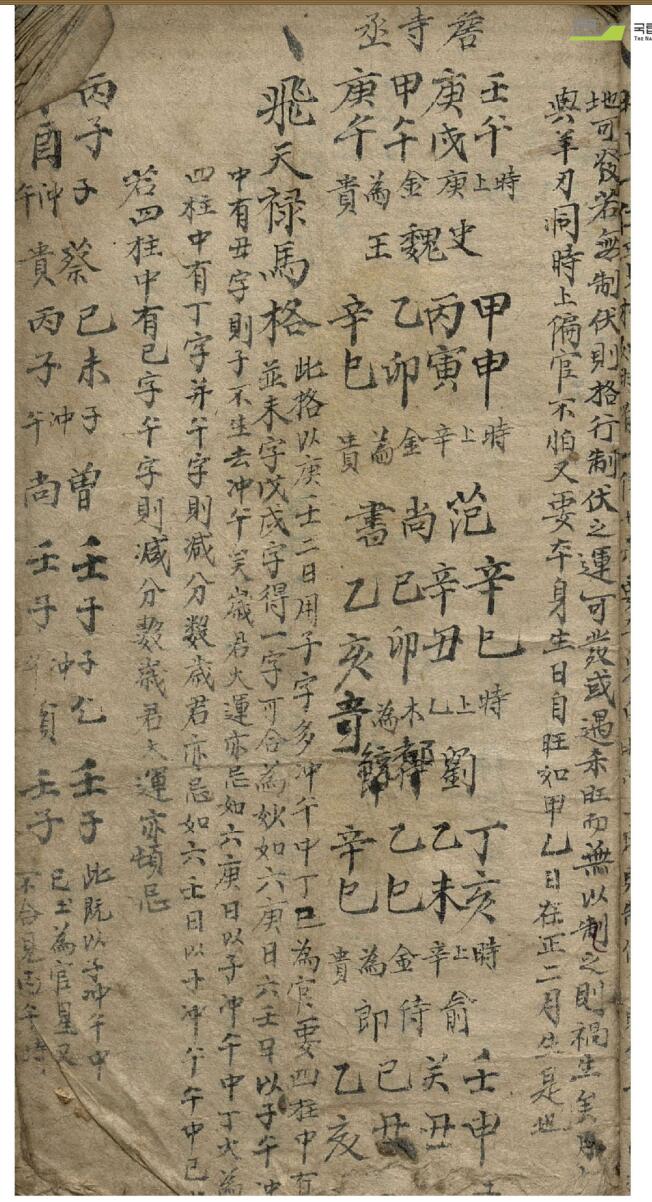 地可發若無制伏則格行制伏之運可發或遇杀旺而無以制之則禍生矣
與羊刃洞時上偏官不怕又要夲身生日自旺如甲乙日在正二月生是也
詹寺丞
壬午
庚戌
甲午
庚午
時上庚金為貴
史魏王
甲申
丙寅
乙卯
辛巳
時上辛金為貴
范尚書
辛巳
辛丑
己卯
乙亥
時上乙木為奇
劉
丁亥
乙未
乙巳
辛巳
時上辛金為貴
俞侍郎
壬申
癸丑
己丑
乙亥
飛天禄馬格
此格以庚壬二日用子字多冲午中丁巳為官要四柱中有
並未字戊戌字得一字可合為妙如六庚日六壬日以子午冲
中有丑字則子不生去冲午矣歲君大運亦忌如六庚日以子冲午中丁火為
四柱中有丁字并午字則减分数歲君亦忌如六壬日以子冲午午中己
若四柱中有己字午字則减分数歲君大運亦頓忌
丙子
子冲午貴
蔡
己未
丙子
子冲午
曾尚
壬子
壬子
子冲
壬子
壬子
此既以子冲午中
己土為官星又
不合見丙午時
국립